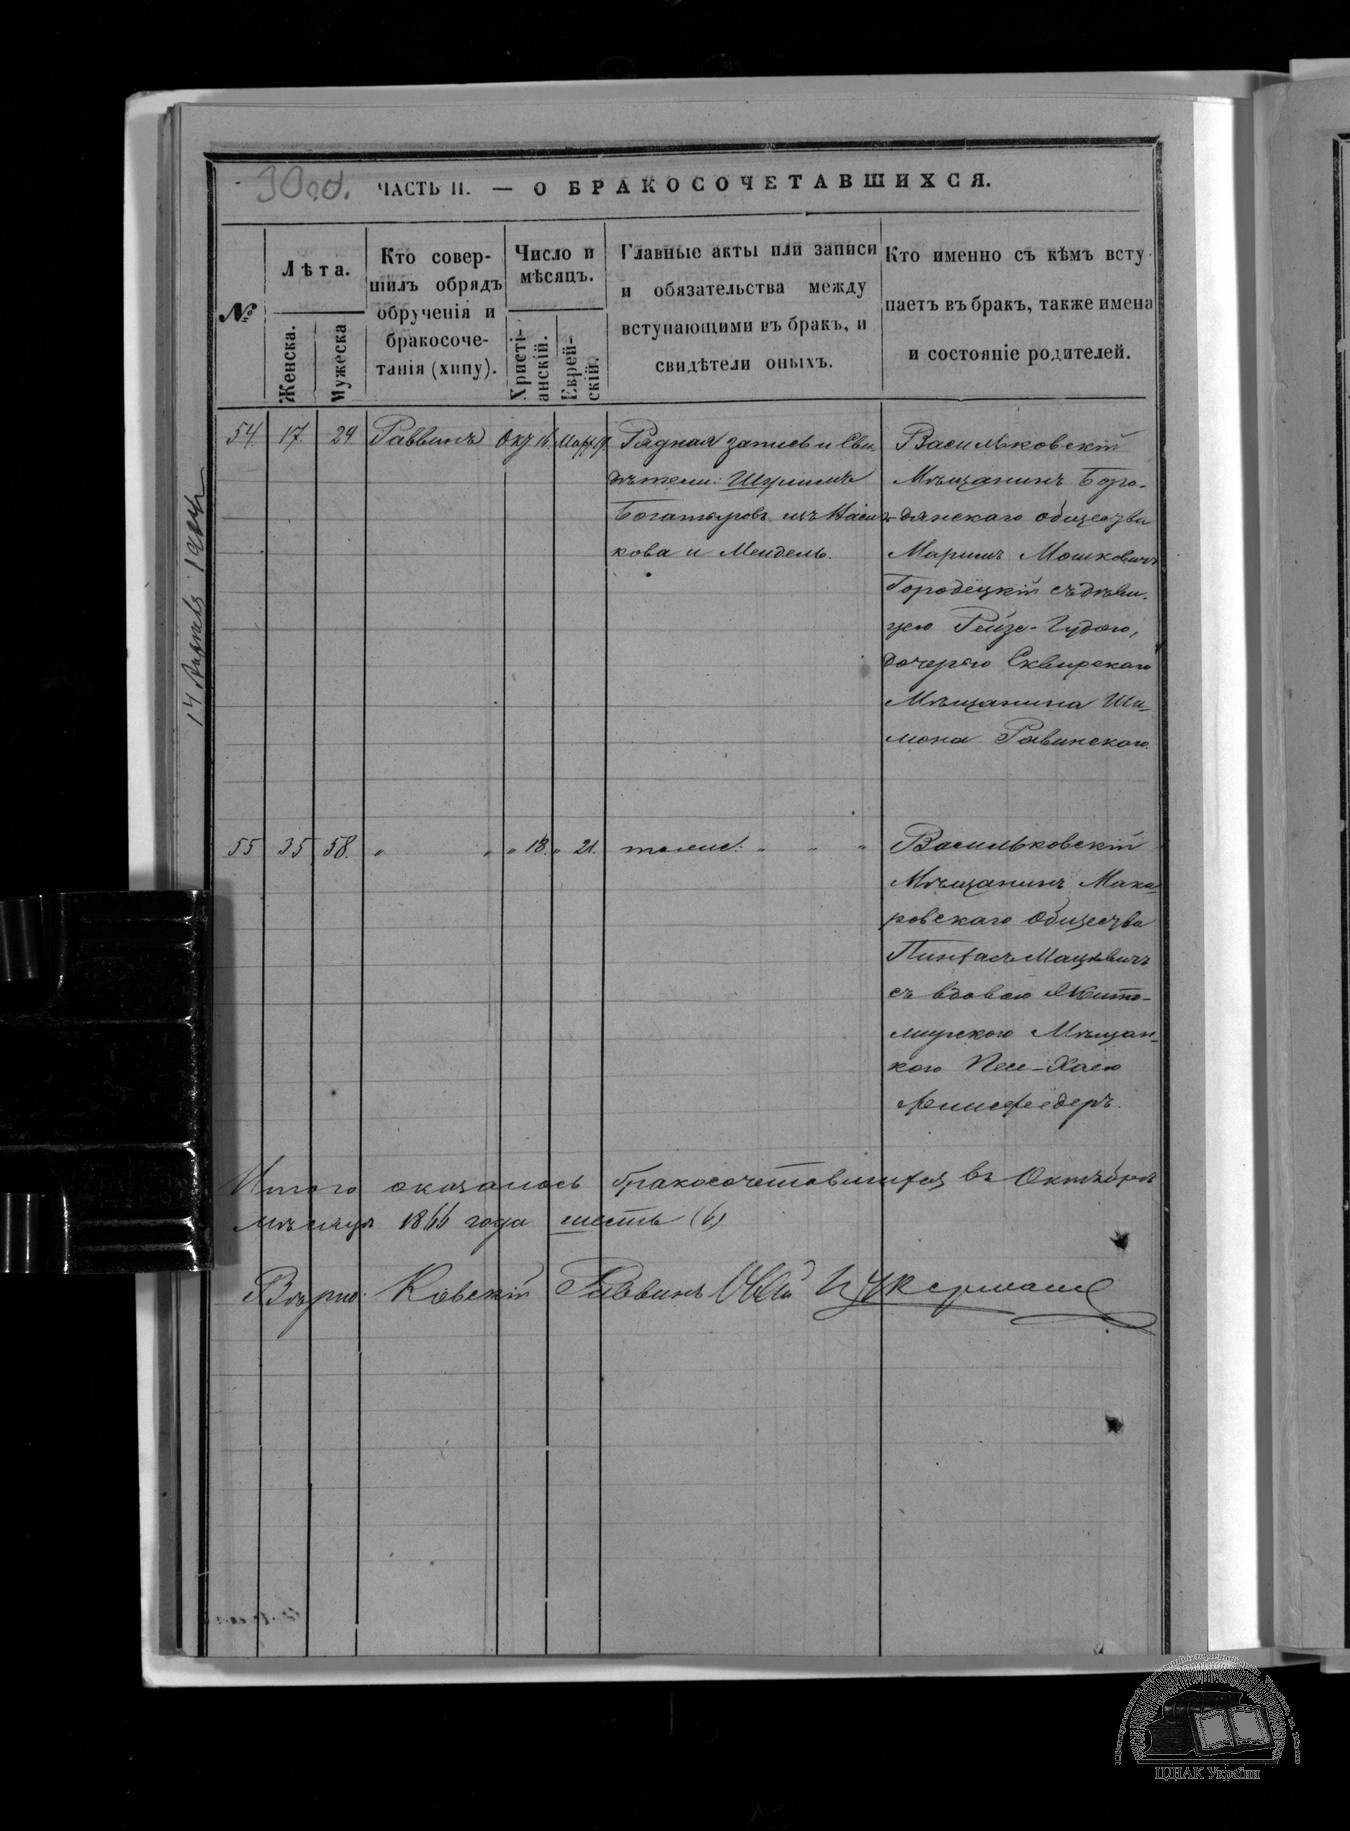 30об.
ЧАСТЬ II. — О БРАКОСОЧЕТАВШИХСЯ.
№
Лѣта.
Женска.
Мужеска
Кто совер-
шилъ обрядъ
обрученія и
бракосоче-
танія (хипу).
Число и
мѣсяцъ.
Христі-
анскій.
Еврей-
скій.
Главные акты или записи
и обязательства между
вступающими въ бракъ, и
свидѣтели оныхъ.
Кто именно съ кѣмъ всту
паетъ въ бракъ, также имена
и состояніе родителей.
54. 17 24 Раввинъ Окт 16. Рядная запись и Сви
дѣтели: Шулимъ
Богатыровъ изъ Василь
кова и Мендель.
Васильковскій
Мѣщанинъ Боро-
дянскаго общества
Маримъ Мошковичъ
Городецкій съ дѣви-
цею Рейзе-Гудою,
дочерью Сквирскаго
Мѣщанина Ши-
мона Равинскаго.
55 35 58. " " " 18. " 21. тоже: " " "
Васильковскій
Мѣщанинъ Мака
ровскаго Общества
Пинхасъ Мацѣвичъ
съ вдовою Жито-
мирскою Мѣщан-
кою Песе-Хаею
Итого оказалось бракосочетавшихся въ Октябрѣ
мѣсяцѣ 1866 года шесть (6)
Раввинъ Цукерманъ
ЦДІАК України